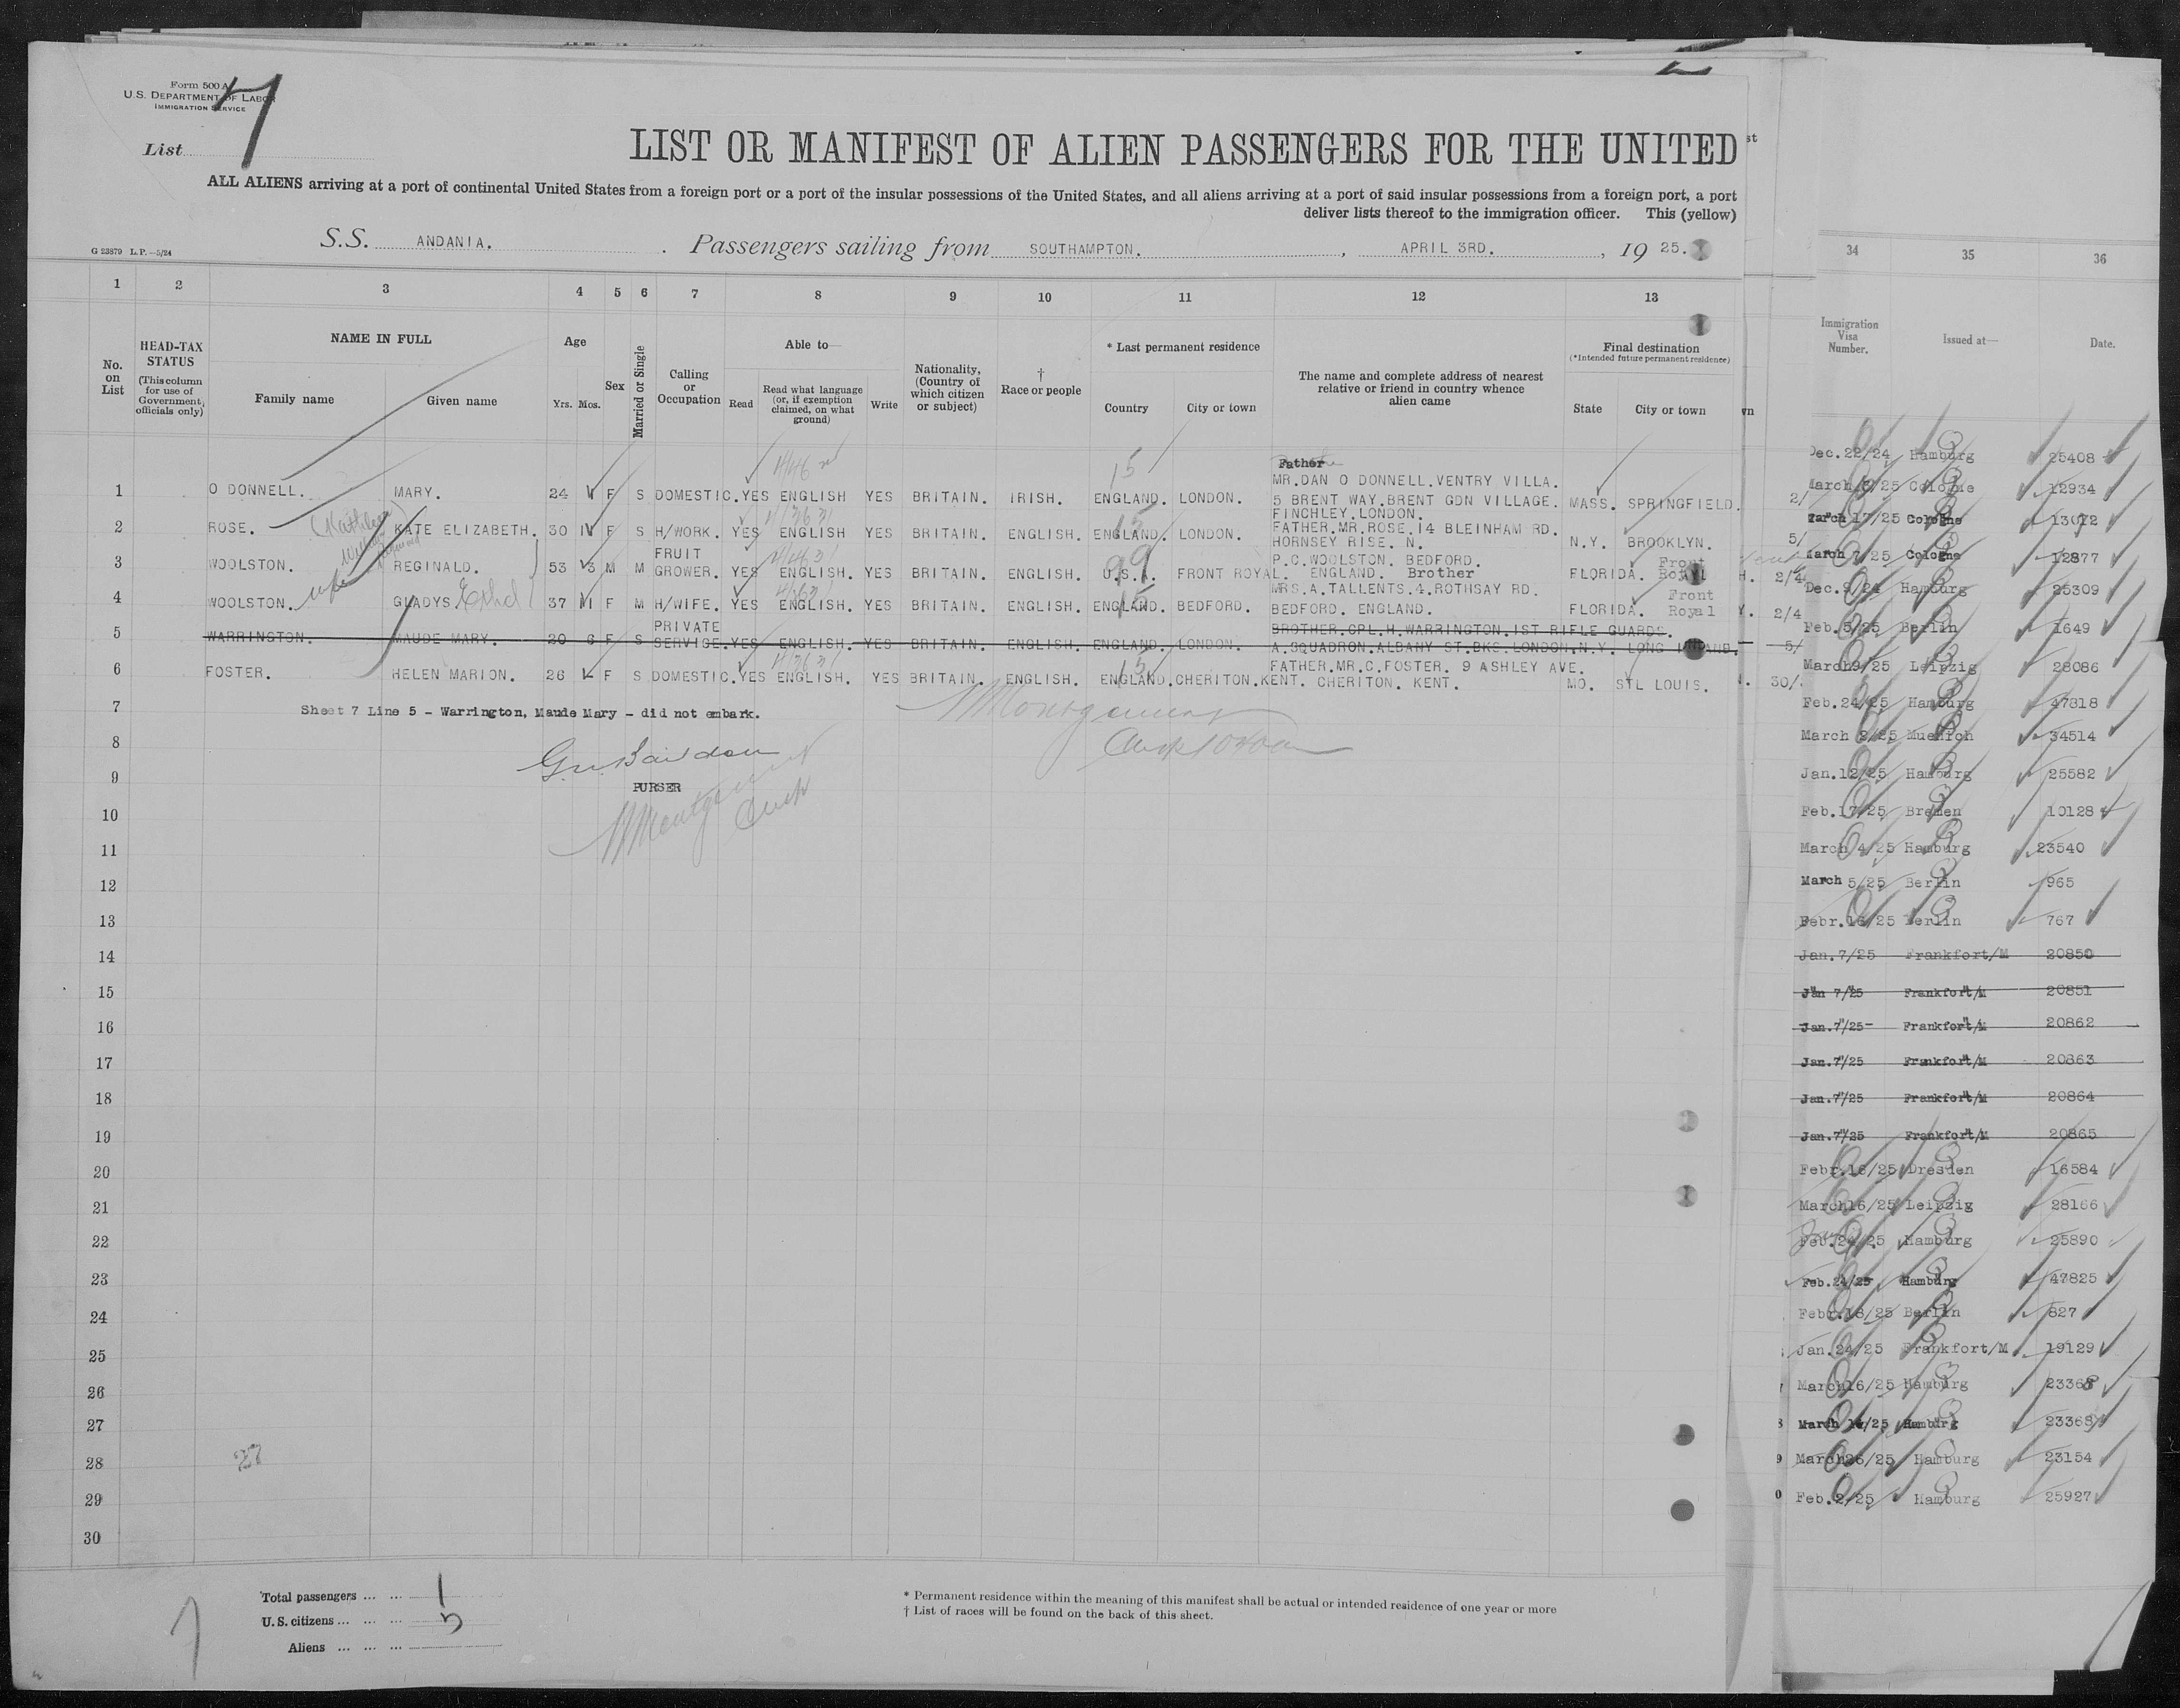 Form 500 A
U.S. DEPARTMENT OF LABOR
IMMIGRATION SERVICE
List 7
LIST OR MANIFEST OF ALIEN PASSENGERS FOR THE UNITED
st
ALL ALIENS arriving at a port of continental United States from a foreign port or a port of the insular possessions of the United States, and all aliens arriving at a port of said insular possessions from a foreign port, a port
deliver lists thereof to the immigration officer. This (yellow)
G 23879 L.P.—5/24
S.S. ANDANIA. Passengers sailing from SOUTHAMPTON. , APRIL 3RD. , 19 25.
1 2 3 4 5 6 7 8 9 10 11 12 13
No. on List
HEAD-TAX STATUS
(This column for use of Government officials only)
NAME IN FULL
Family name
Given name
Age
Yrs. Mos.
Sex
Married or Single
Calling or Occupation
Able to—
Read
Read what language (or, if exemption claimed, on what ground)
Write
Nationality, (Country of which citizen or subject)
† Race or people
* Last permanent residence
Country
City or town
The name and complete address of nearest relative or friend in country whence alien came
Final destination
(*Intended future permanent residence)
State
City or town
wn
Father
MR.DAN O DONNELL.VENTRY VILLA.
1 O DONNELL. MARY. 24 F S DOMESTIC. YES ENGLISH YES BRITAIN. IRISH. ENGLAND. LONDON. 5 BRENT WAY.BRENT GDN VILLAGE. MASS. SPRINGFIELD.
15
FINCHLEY.LONDON.
2 ROSE. (Kathleen) KATE ELIZABETH. 30 F S H/WORK. YES ENGLISH YES BRITAIN. ENGLISH. ENGLAND. LONDON. FATHER.MR.ROSE.14 BLEINHAM RD.
15
HORNSEY RISE. N. N.Y. BROOKLYN.
FRUIT
P.C.WOOLSTON. BEDFORD.
3 WOOLSTON. REGINALD. 53 3 M M GROWER. YES ENGLISH. YES BRITAIN. ENGLISH. U.S.A. FRONT ROYAL. ENGLAND. Brother FLORIDA. Front Royal
99
MRS.A.TALLENTS.4.ROTHSAY RD.
4 WOOLSTON. wife GLADYS Ethel 37 F M H/WIFE. YES ENGLISH. YES BRITAIN. ENGLISH. ENGLAND. BEDFORD. BEDFORD. ENGLAND. FLORIDA. Front Royal
15
PRIVATE
BROTHER.CPL.H.WARRINGTON.1ST RIFLE GUARDS.
5 WARRINGTON. MAUDE MARY. 20 6 F S SERVICE. YES ENGLISH. YES BRITAIN. ENGLISH. ENGLAND. LONDON. A.SQUADRON.ALBANY ST.BKS.LONDON. N.Y. LONG ISLAND.
FATHER.MR.C.FOSTER. 9 ASHLEY AVE.
6 FOSTER. HELEN MARION. 26 F S DOMESTIC. YES ENGLISH. YES BRITAIN. ENGLISH. ENGLAND. CHERITON.KENT. CHERITON. KENT. MO. ST LOUIS.
15
7 Sheet 7 Line 5 - Warrington, Maude Mary - did not embark.
8
9
PURSER
10
11
12
13
14
15
16
17
18
19
20
21
22
23
24
25
26
27
28
29
30
Total passengers ... ...
U.S. citizens ... ... ... 1
Aliens ... ... ... 5
* Permanent residence within the meaning of this manifest shall be actual or intended residence of one year or more
† List of races will be found on the back of this sheet.
7
34 35 36
Immigration Visa Number.
Issued at—
Date.
Dec.22/24 Hamburg 25408
March 6/25 Cologne 12934
March 17/25 Cologne 13072
March 7/25 Cologne 12877
Dec.9/24 Hamburg 25309
Feb.5/25 Berlin 1649
March9/25 Leipzig 28086
Feb.24/25 Hamburg 47818
March 2/25 Muenich 34514
Jan.12/25 Hamburg 25582
Feb.17/25 Bremen 10128
March 4/25 Hamburg 23540
March 5/25 Berlin 965
Febr.16/25 Berlin 767
Jan.7/25 Frankfort/M 20850
Jan 7/25 Frankfort/M 20851
Jan.7/25- Frankfort/M 20862
Jan.7/25 Frankfort/M 20863
Jan.7/25 Frankfort/M 20864
Jan.7/25 Frankfort/M 20865
Febr.16/25 Dresden 16584
March16/25 Leipzig 28166
Feb.24/25 Hamburg 25890
Feb.24/25 Hamburg 47825
Febr.18/25 Berlin 827
Jan.24/25 Frankfort/M. 19129
March16/25 Hamburg 23368
March 16/25 Hamburg 23369
March26/25 Hamburg 23154
Feb.2/25 Hamburg 25927